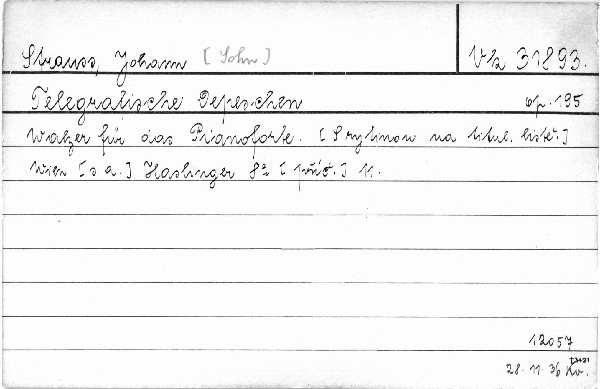 Strauss, Johann [Sohn] Vk 31893.
Telegrafische Depeschen op. 195
Walzer für das Pianoforte. [S rytinou na titul. listě.]
Wien [s a.] Haslinger 8° [příč.] 11.
12057
28 11 36 Kv.